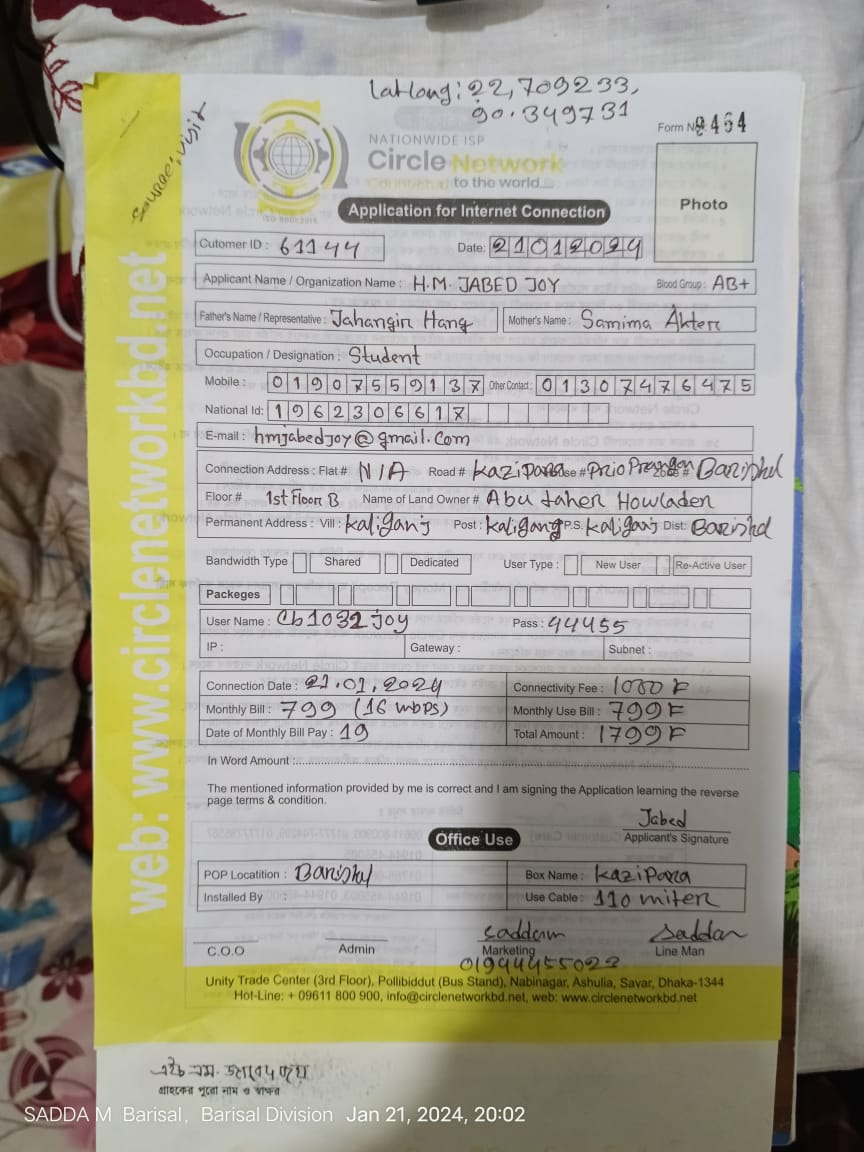 Lat Long: 22,709233,
90.349731
Source: visit
NATIONWIDE ISP
Form No 0464
Circle Network
Connected to the world...
ISO 9001:2015
Photo
Application for Internet Connection
Cutomer ID : 61144 Date: 21012024
Applicant Name / Organization Name : H.M. JABED JOY Blood Group : AB+
Father's Name / Representative : Jahangir Hang Mother's Name : Samima Akter
Occupation / Designation : Student
Mobile : 01907559137 Other Contact : 01307476475
National Id: 1962306617
E-mail : hmjabedjoy@gmail.com
Connection Address : Flat # N/A Road # Kazipara House # Prio Prangan Barishal
Floor # 1st Floor B Name of Land Owner # Abu taher Howlader
Permanent Address : Vill : Kaliganj Post : Kaliganj P.S. Kaliganj Dist: Barishal
Bandwidth Type Shared Dedicated User Type : New User Re-Active User
Packeges
User Name : Cb1032joy Pass : 44455
IP : Gateway : Subnet :
Connection Date : 21.01.2024 Connectivity Fee : 1000 F
Monthly Bill : 799 (16 mbps) Monthly Use Bill : 799 F
Date of Monthly Bill Pay : 19 Total Amount : 1799 F
In Word Amount :
The mentioned information provided by me is correct and I am signing the Application learning the reverse
page terms & condition.
Jabed
Applicant's Signature
Office Use
POP Locatition : Barishal Box Name : Kazipara
Installed By : Use Cable : 110 miter
Saddam Saddam
C.O.O Admin Marketing Line Man
01944455023
Unity Trade Center (3rd Floor), Pollibiddut (Bus Stand), Nabinagar, Ashulia, Savar, Dhaka-1344
Hot-Line: + 09611 800 900, info@circlenetworkbd.net, web: www.circlenetworkbd.net
web: www.circlenetworkbd.net
এইচ এম. জাবেদ জয়
গ্রাহকের পুরো নাম ও স্বাক্ষর
SADDA M Barisal, Barisal Division Jan 21, 2024, 20:02